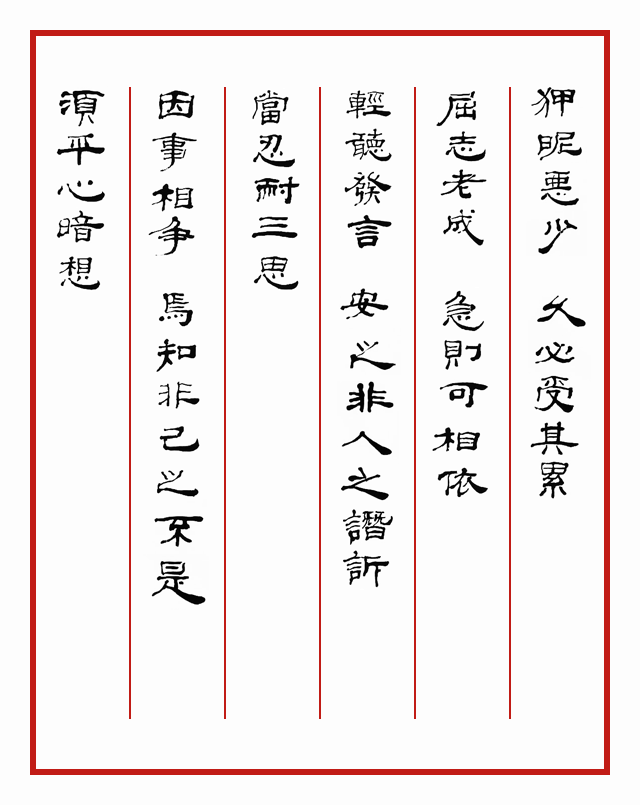 狎昵悪少 久必受其累
屈志老成 急則可相依
輕聽發言 安之非人之譖訴
當忍耐三思
因事相争 焉知非己之不是
湏平心暗想